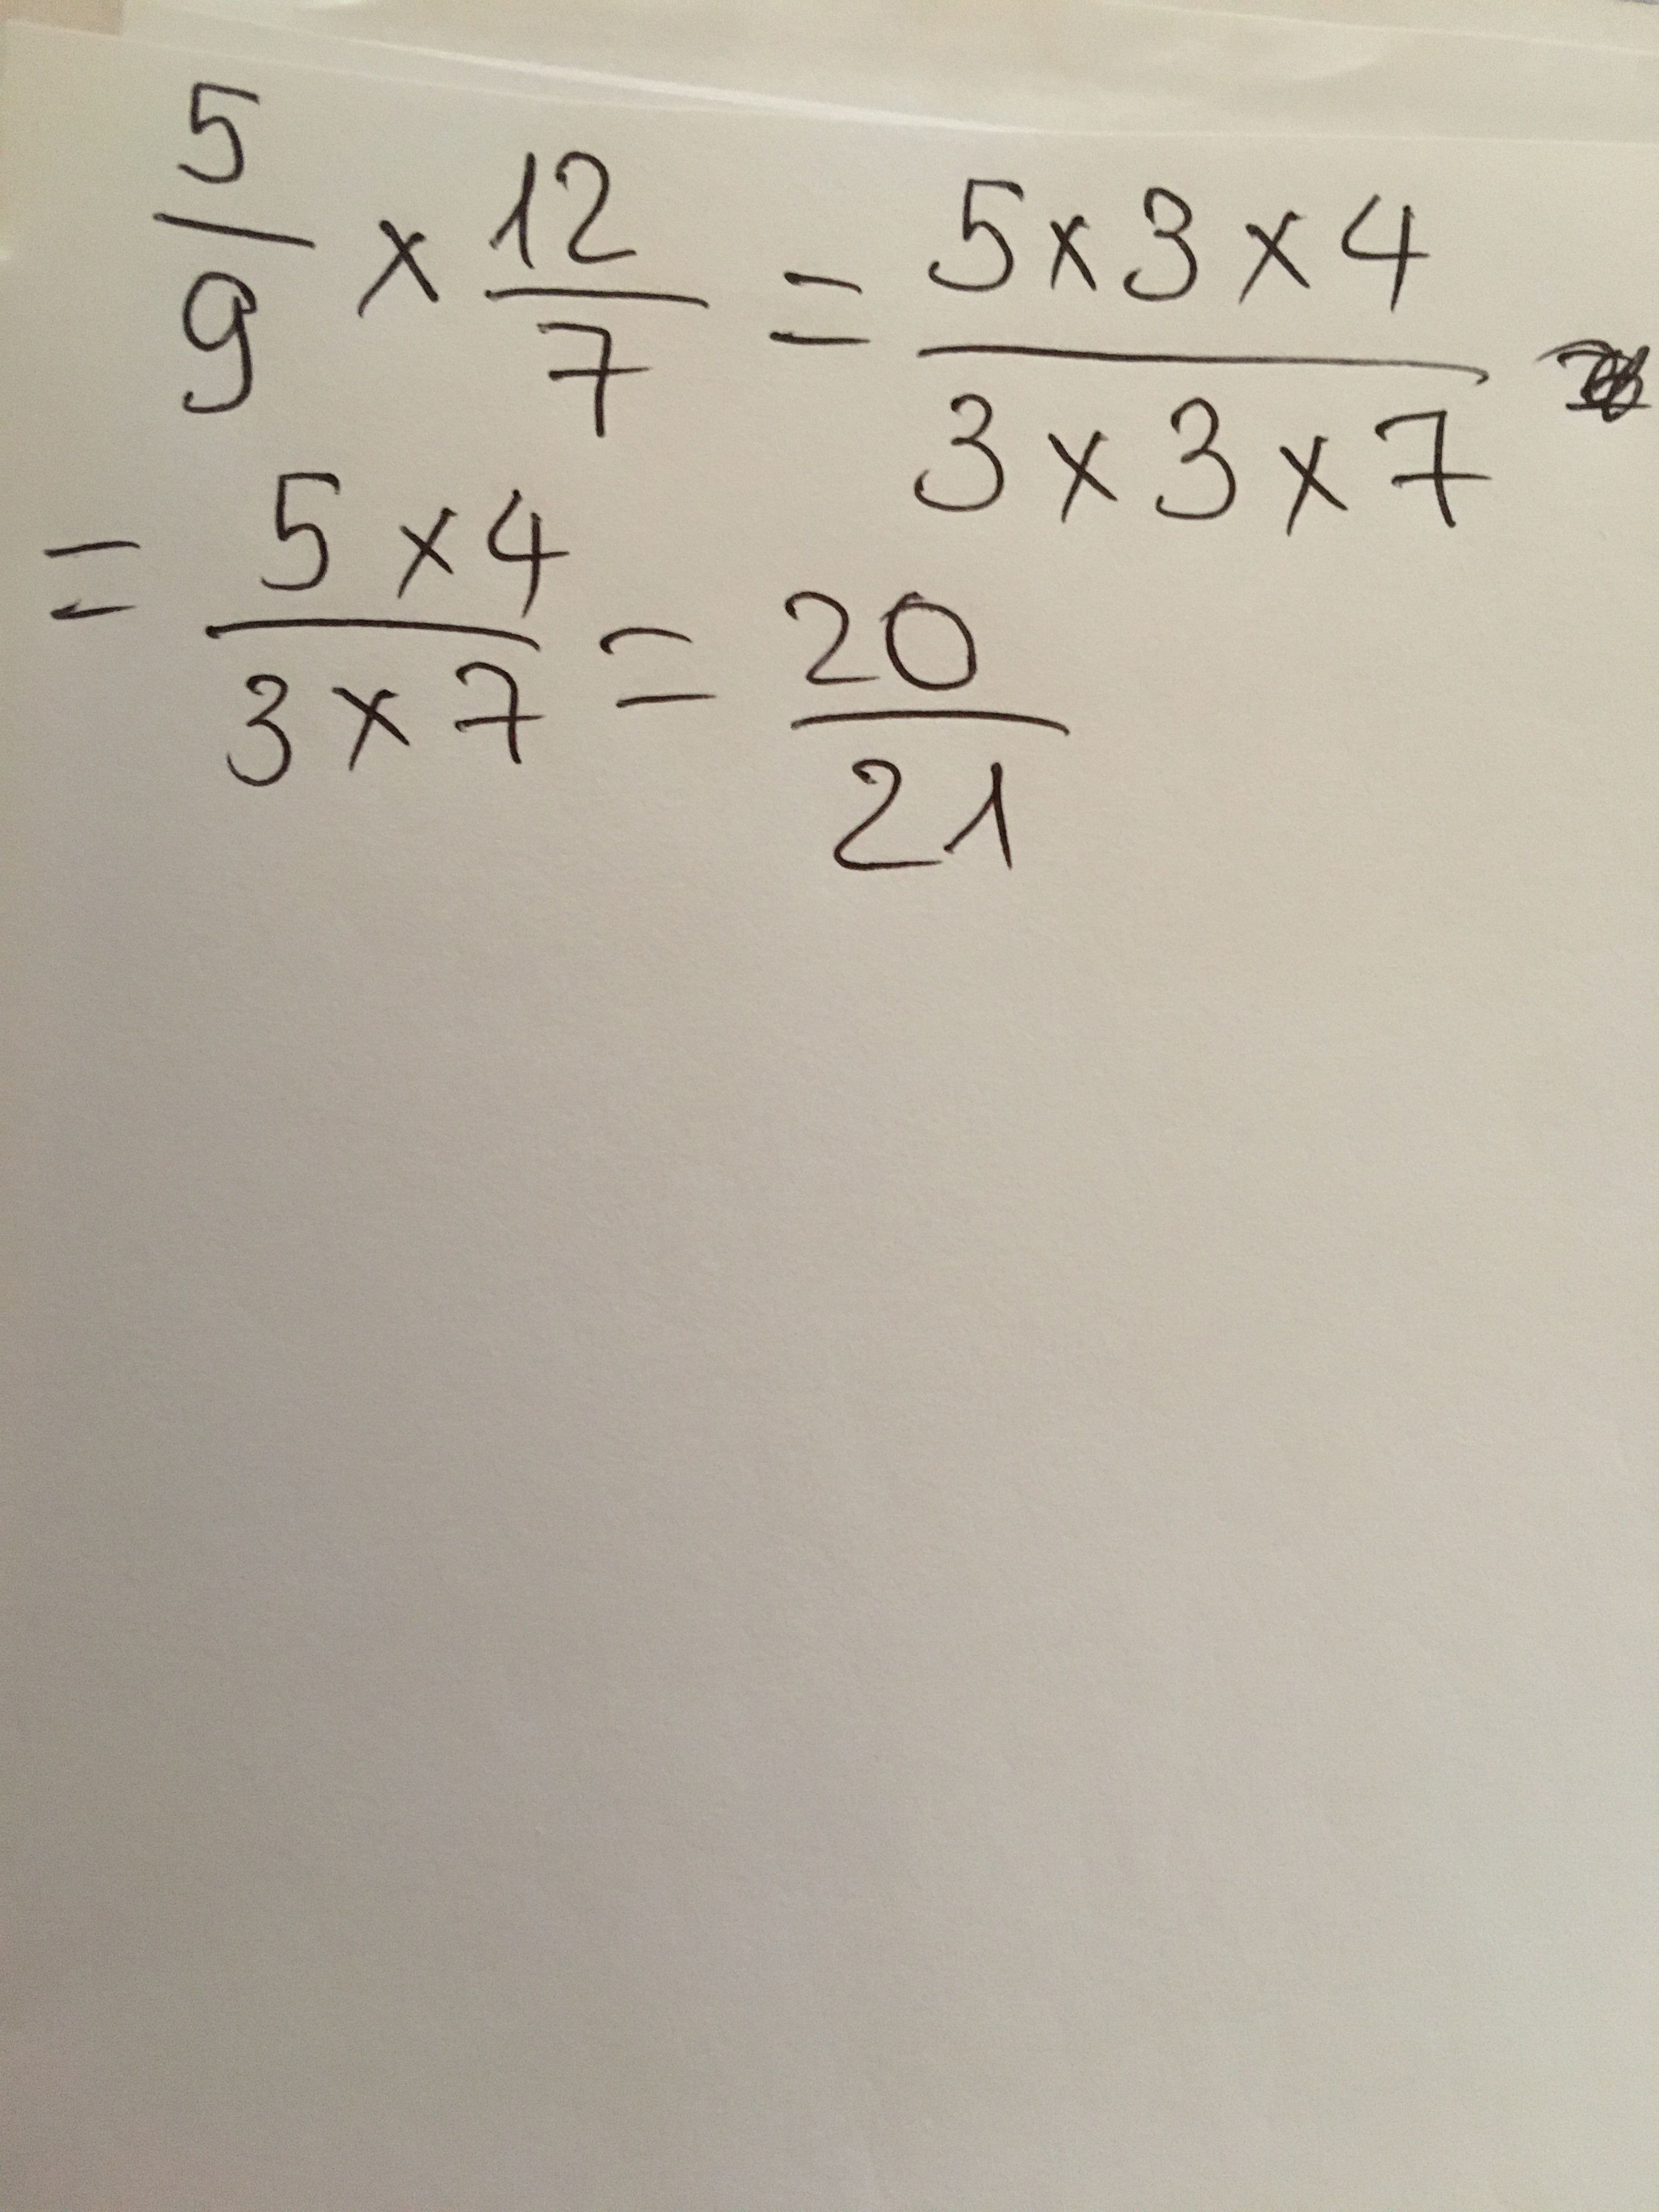 5/9 × 12/7 = 5×3×4 / 3×3×7
= 5×4 / 3×7 = 20/21